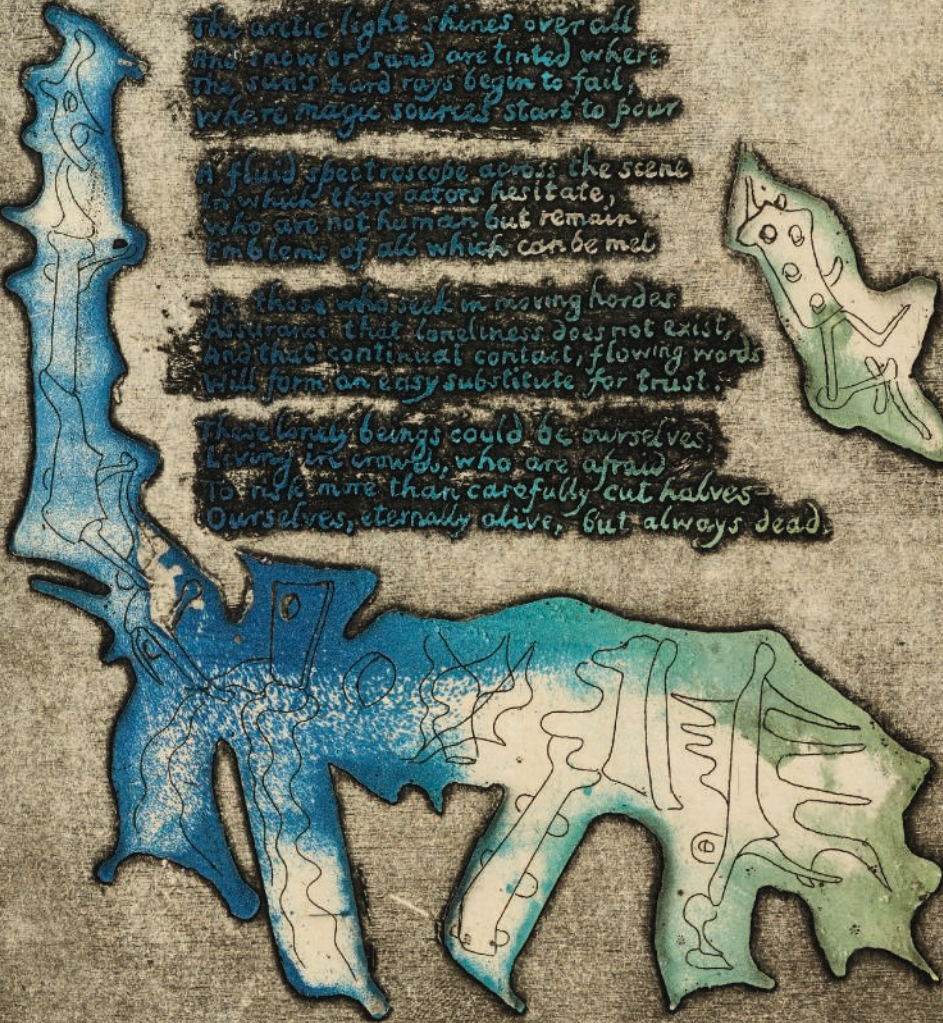 The arctic light shines over all
And snow or sand are tinted where
The sun's hard rays begin to fail,
Where magic sources start to pour
A fluid spectroscope across the scene
In which these actors hesitate,
Who are not human but remain
Emblems of all which can be met
In those who seek in moving hordes
Assurance that loneliness does not exist,
And that continual contact, flowing words
Will form an easy substitute for trust.
These lonely beings could be ourselves,
Living in crowds, who are afraid
To risk more than carefully cut halves—
Ourselves, eternally alive, but always dead.